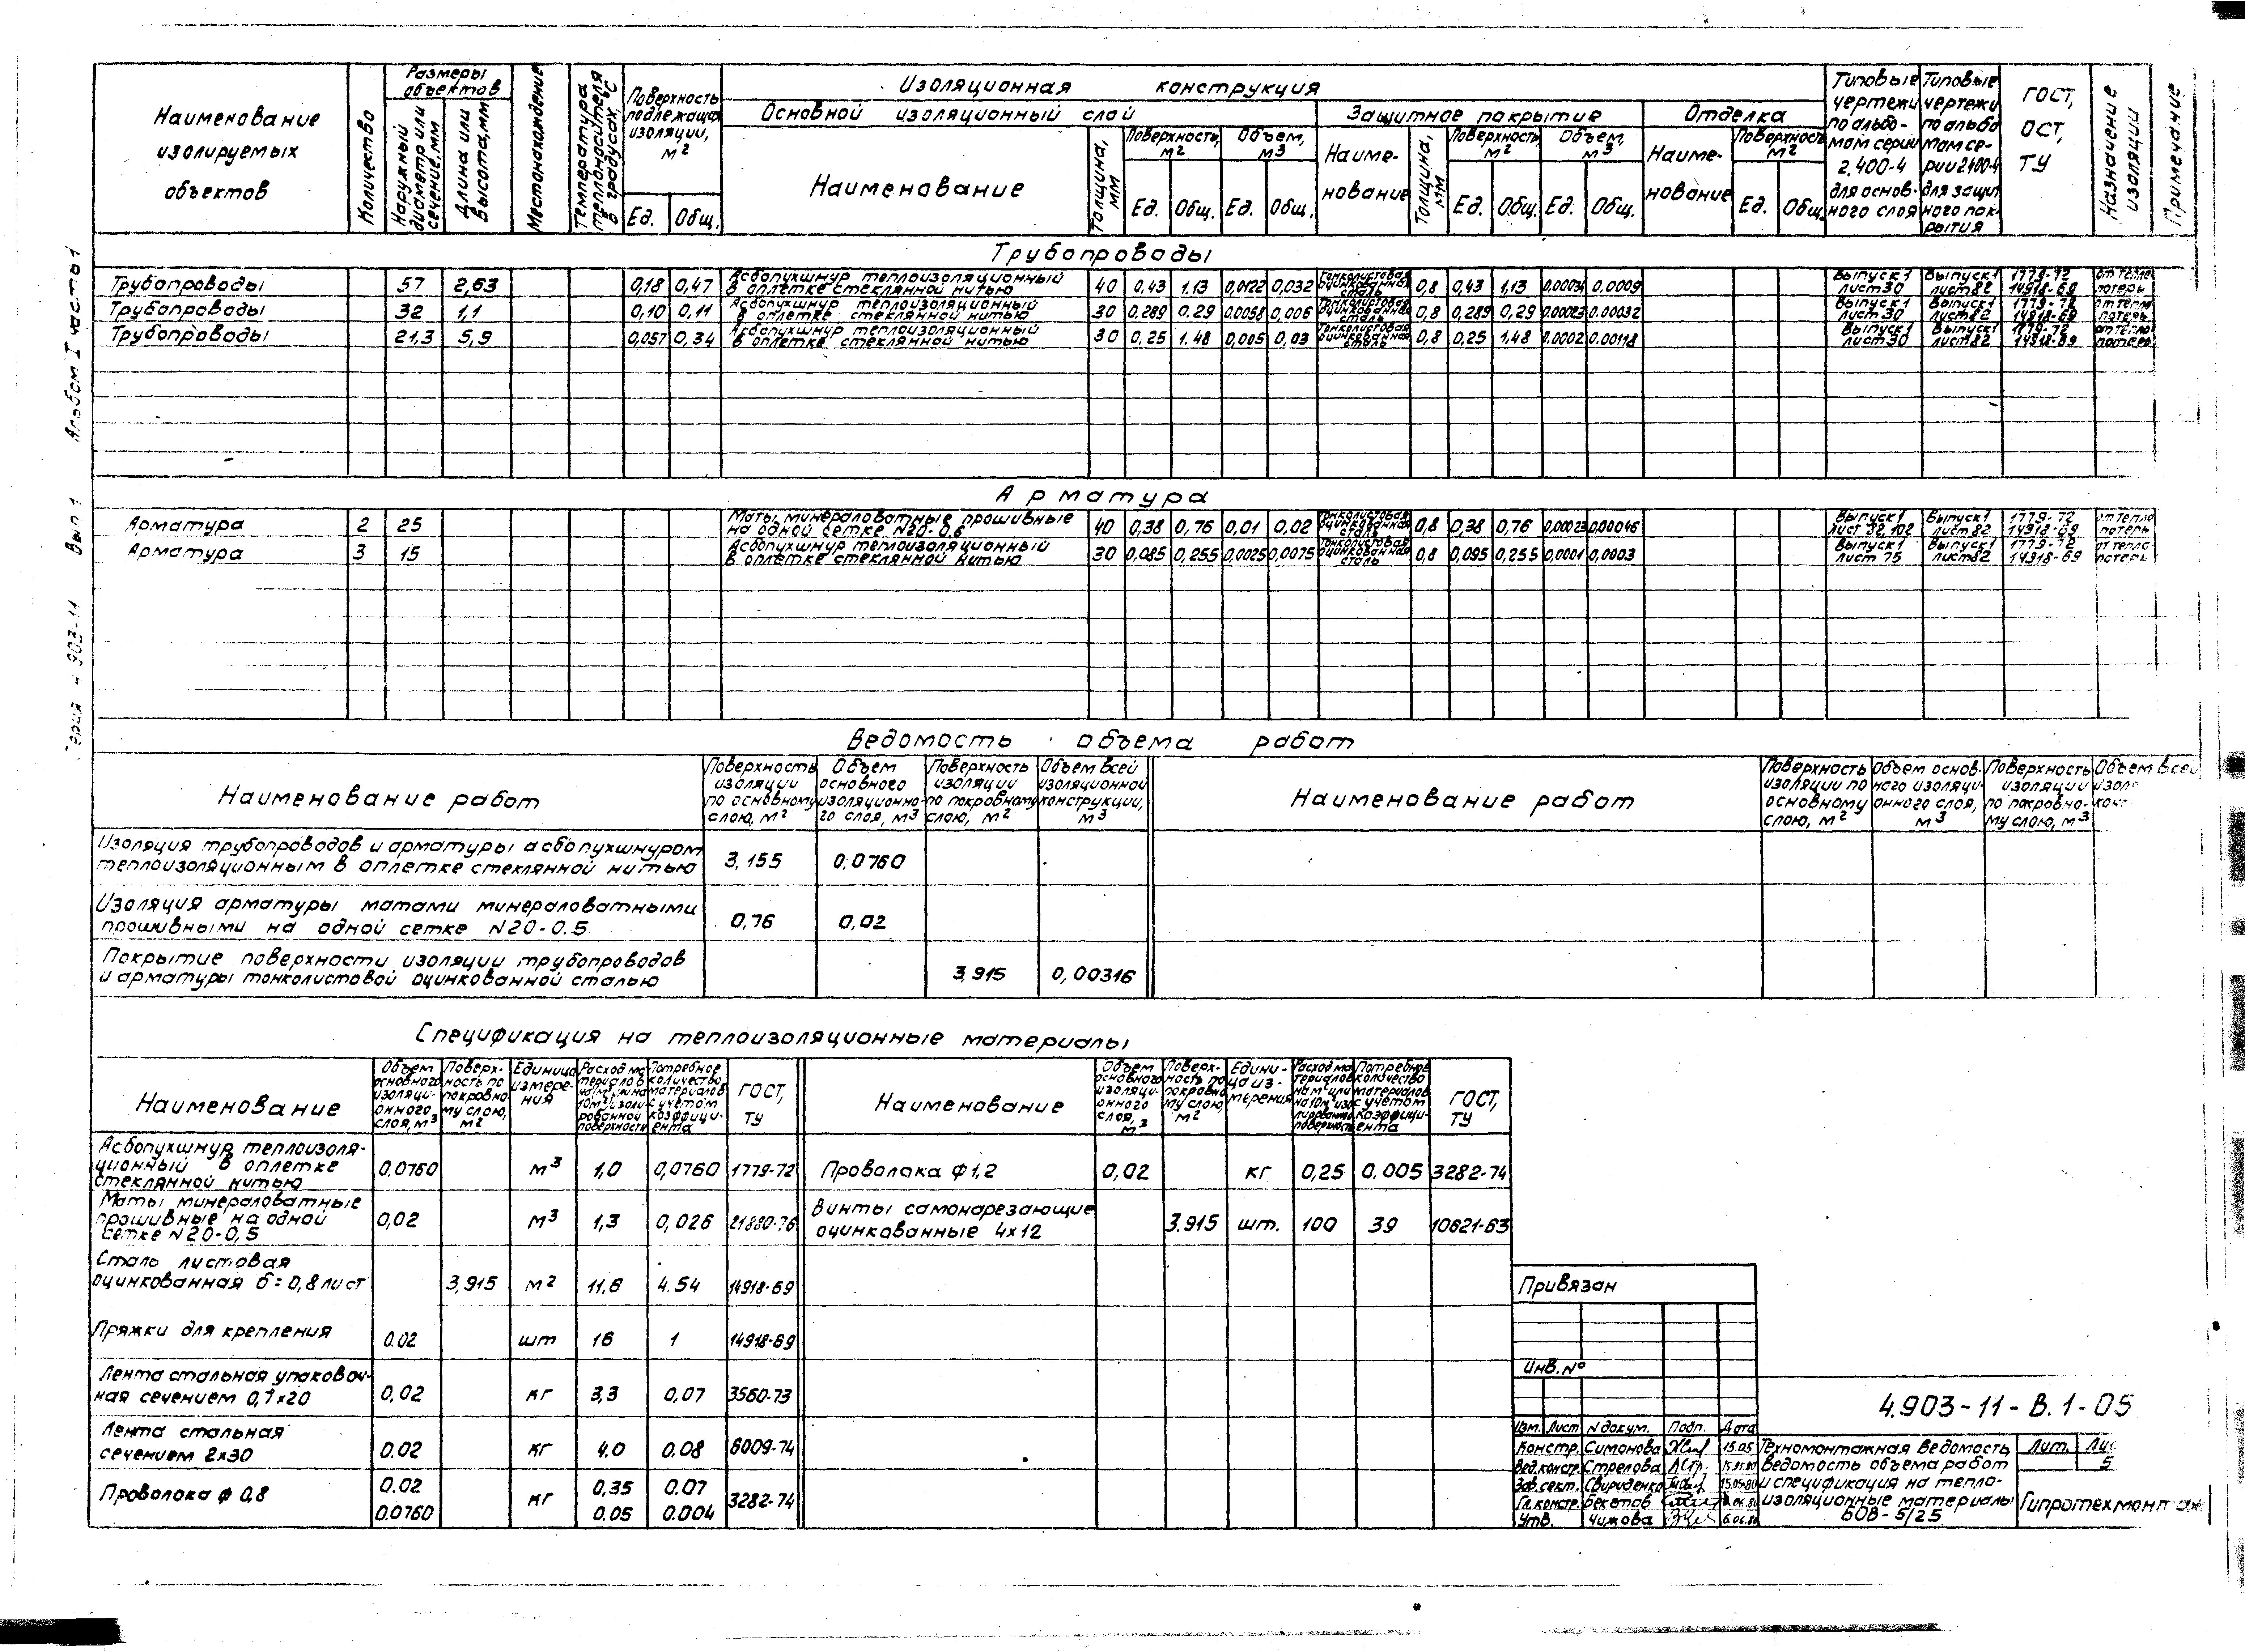 Серия 4.903-11 Вып 1 Альбом I часть 1
Наименование изолируемых объектов
Количество
Размеры объектов
Наружный диаметр или сечение, мм
Длина или высота, мм
Местонахождение
Температура теплоносителя в градусах °С
Поверхность подлежащая изоляции, м2
Ед. Общ.
Изоляционная конструкция
Основной изоляционный слой
Наименование
Толщина, мм
Поверхность, м2
Ед. Общ.
Объем, м3
Ед. Общ.
Защитное покрытие
Наименование
Толщина, мм
Поверхность, м2
Ед. Общ.
Объем, м3
Ед. Общ.
Отделка
Наименование
Поверхность м2
Ед. Общ.
Типовые чертежи по альбомам серии 2.400-4 для основного слоя
Типовые чертежи по альбомам серии 2.400-4 для защитного покрытия
ГОСТ, ОСТ, ТУ
Назначение изоляции
Примечание
Трубопроводы
Трубопроводы 57 2,63 0,18 0,47 Асбопухшнур теплоизоляционный в оплетке стеклянной нитью 40 0.43 1.13 0,0122 0,032 тонколистовая оцинкованная сталь 0,8 0,43 1,13 0.00034 0.0009 Выпуск 1 лист 30 Выпуск 1 лист 82 1779-72 14918-69 от тепло потерь
Трубопроводы 32 1,1 0,10 0,11 Асбопухшнур теплоизоляционный в оплетке стеклянной нитью 30 0.289 0.29 0.0058 0,006 тонколистовая оцинкованная сталь 0,8 0,289 0,29 0.00023 0.00032 Выпуск 1 лист 30 Выпуск 1 лист 82 1779-72 14918-69 от тепло потерь
Трубопроводы 21,3 5,9 0,057 0,34 Асбопухшнур теплоизоляционный в оплетке стеклянной нитью 30 0,25 1.48 0,005 0,03 тонколистовая оцинкованная сталь 0,8 0,25 1,48 0.0002 0.00118 Выпуск 1 лист 30 Выпуск 1 лист 82 1779-72 14918-69 от тепло потерь
Арматура
Арматура 2 25 Маты минераловатные прошивные на одной сетке N20-0.6 40 0,38 0,76 0,01 0,02 тонколистовая оцинкованная сталь 0,8 0,38 0,76 0,00023 0,00046 Выпуск 1 лист 92,102 Выпуск 1 лист 82 1779-72 14918-69 от тепло потерь
Арматура 3 15 Асбопухшнур теплоизоляционный в оплетке стеклянной нитью 30 0,085 0,255 0,0025 0,0075 тонколистовая оцинкованная сталь 0,8 0,095 0,255 0,0001 0,0003 Выпуск 1 лист 75 Выпуск 1 лист 82 1779-72 14918-69 от тепло потерь
Ведомость объема работ
Наименование работ
Поверхность изоляции по основному слою, м2
Объем основного изоляционного слоя, м3
Поверхность изоляции по покровному слою, м2
Объем всей изоляционной конструкции, м3
Наименование работ
Поверхность изоляции по основному слою, м2
Объем основного изоляционного слоя, м3
Поверхность изоляции по покровному слою, м3
Объем всей
Изоляция трубопроводов и арматуры асбопухшнуром
теплоизоляционным в оплетке стеклянной нитью 3,155 0.0760
Изоляция арматуры матами минераловатными
прошивными на одной сетке N20-0.5 0,76 0,02
Покрытие поверхности изоляции трубопроводов
и арматуры тонколистовой оцинкованной сталью 3,915 0,00316
Спецификация на теплоизоляционные материалы
Наименование
Объем основного изоляционного слоя, м3
Поверхность по покровному слою, м2
Единица измерения
Потребное количество материалов с учетом коэффициента
ГОСТ, ТУ
Наименование
Объем основного изоляционного слоя, м3
Поверхность по покровному слою, м2
Единица измерения
Потребное количество материалов с учетом коэффициента
ГОСТ, ТУ
Асбопухшнур теплоизоляционный в оплетке стеклянной нитью 0.0760 м3 1,0 0,0760 1779-72
Проволока ф1,2 0,02 кг 0,25 0.005 3282-74
Маты минераловатные прошивные на одной сетке N20-0,5 0,02 м3 1,3 0,026 21880-76
Винты самонарезающие оцинкованные 4х12 3.915 шт. 100 39 10621-63
Сталь листовая оцинкованная б=0,8 лист 3,915 м2 11,6 4.54 14918-69
Пряжки для крепления 0.02 шт 16 1 14918-69
Лента стальная упаковочная сечением 0,7х20 0,02 кг 3,3 0,07 3560-73
Лента стальная сечением 2х30 0.02 кг 4.0 0.08 6009-74
Проволока ф 0,8 0.02 кг 0,35 0.07 3282-74
0.0760 0.05 0.004
Привязан
Инв. №
4.903-11-В.1-05
Изм. Лист N докум. Подп. Дата
Констр. Симонова 15.05
Вед.констр. Стрелова 15.05.80
Зав.сект. Свириденко 15.05.80
Гл.констр. Бекетов .06.80
Утв. Чижова 6.06.80
Техномонтажная ведомость
Ведомость объема работ
и спецификация на тепло-
изоляционные материалы
БОВ-5/25
Лит. Лис
5
Гипротехмонтаж